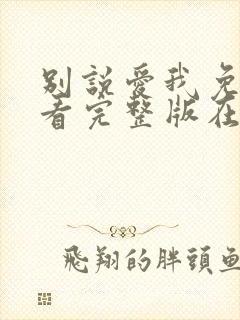 別說愛我免
看完整版在
飛翔的胖頭魚